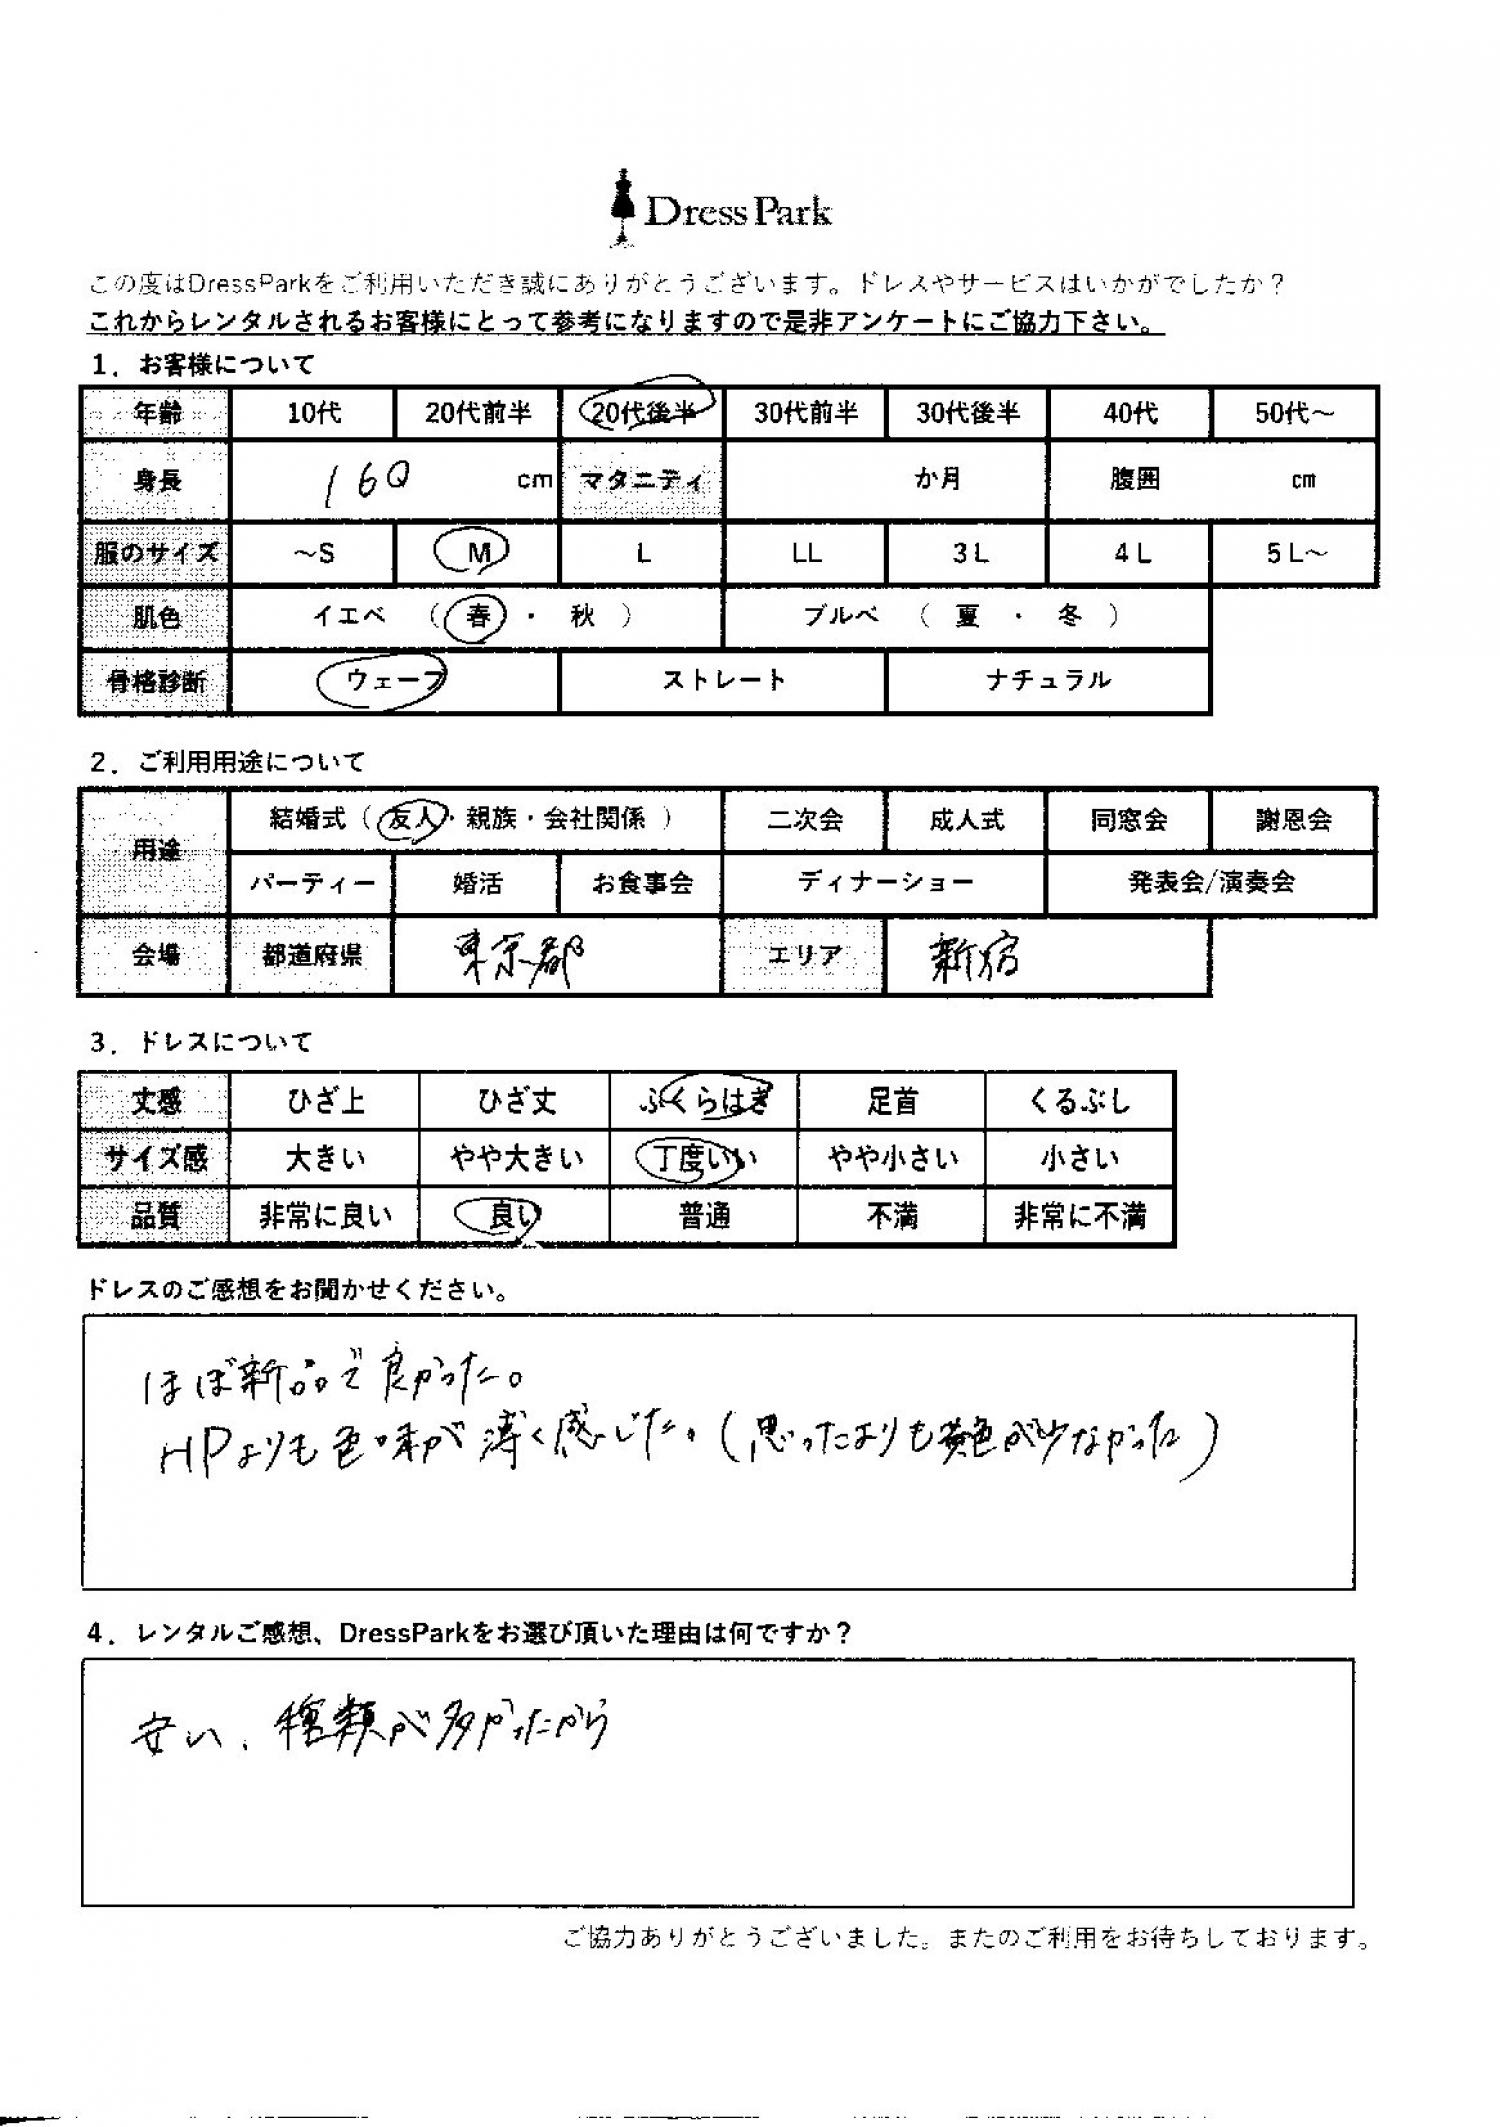 Dress Park
この度はDressParkをご利用いただき誠にありがとうございます。ドレスやサービスはいかがでしたか？
これからレンタルされるお客様にとって参考になりますので是非アンケートにご協力下さい。
1．お客様について
年齢 10代 20代前半 20代後半 30代前半 30代後半 40代 50代～
身長 160 cm マタニティ か月 腹囲 cm
服のサイズ ～S M L LL 3L 4L 5L～
肌色 イエベ （ 春 ・ 秋 ） ブルベ （ 夏 ・ 冬 ）
骨格診断 ウェーブ ストレート ナチュラル
2．ご利用用途について
用途 結婚式（ 友人・親族・会社関係 ） 二次会 成人式 同窓会 謝恩会
パーティー 婚活 お食事会 ディナーショー 発表会/演奏会
会場 都道府県 東京都 エリア 新宿
3．ドレスについて
丈感 ひざ上 ひざ丈 ふくらはぎ 足首 くるぶし
サイズ感 大きい やや大きい 丁度いい やや小さい 小さい
品質 非常に良い 良い 普通 不満 非常に不満
ドレスのご感想をお聞かせください。
ほぼ新品で良かった。
HPよりも色味が薄く感じた。（思ったよりも黄色が少なかった）
4．レンタルご感想、DressParkをお選び頂いた理由は何ですか？
安い、種類が多かったから
ご協力ありがとうございました。またのご利用をお待ちしております。